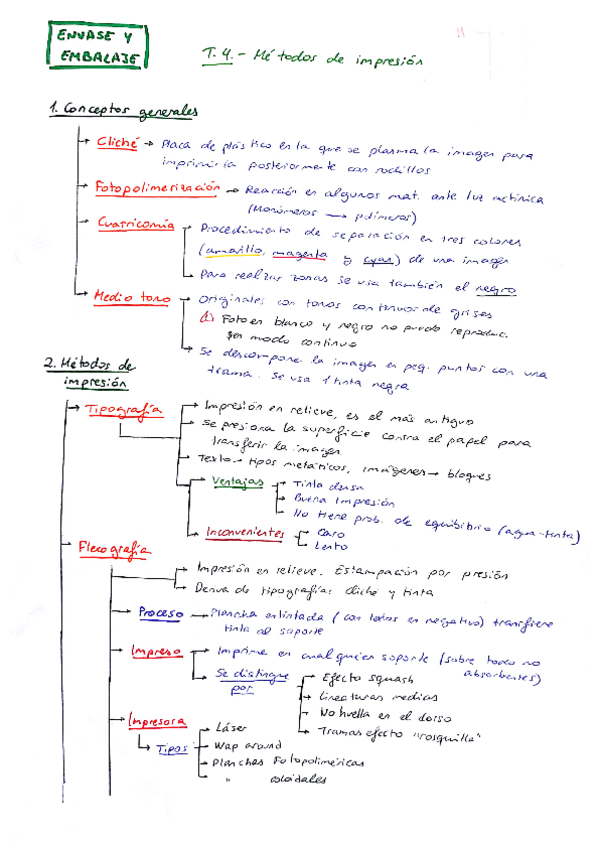 ENVASE Y
EMBALAJE
T.4.- Métodos de impresión
1. Conceptos generales
Cliché → Placa de plástico en la que se plasma la imagen para
imprimirla posteriormente con rodillos
Fotopolimerización → Reacción en algunos mat. ante luz actínica
(Monómeros → polímeros)
Cuatricomía
Procedimiento de separación en tres colores
(amarillo, magenta y cyan) de una imagen
Para realzar zonas se usa también el negro
Medio tono
Originales con tonos continuos de grises
Foto en blanco y negro no puede reproduc.
modo continuo
Se descompone la imagen en peq. puntos con una
trama. Se usa 1 tinta negra
2. Métodos de
impresión
Tipografía
Impresión en relieve, es el más antiguo
Se presiona la superficie contra el papel para
transferir la imagen
Texto → tipos metálicos, imágenes → bloques
Ventajas
Tinta densa
Buena impresión
No tiene prob. de equilibrio (agua-tinta)
Inconvenientes
Caro
Lento
Flexografía
Impresión en relieve. Estampación por presión
Deriva de tipografía: cliché y tinta
Proceso → Plancha entintada (con textos en negativo) transfiere
tinta al soporte
Impreso
Imprime en cualquier soporte (sobre todo no
absorbentes)
Se distingue
por
Efecto squash
Lineaturas medias
No huella en el dorso
Tramas efecto "rosquilla"
Impresora
Tipos
Láser
Wap around
Planchas Fotopoliméricas
" coloidales